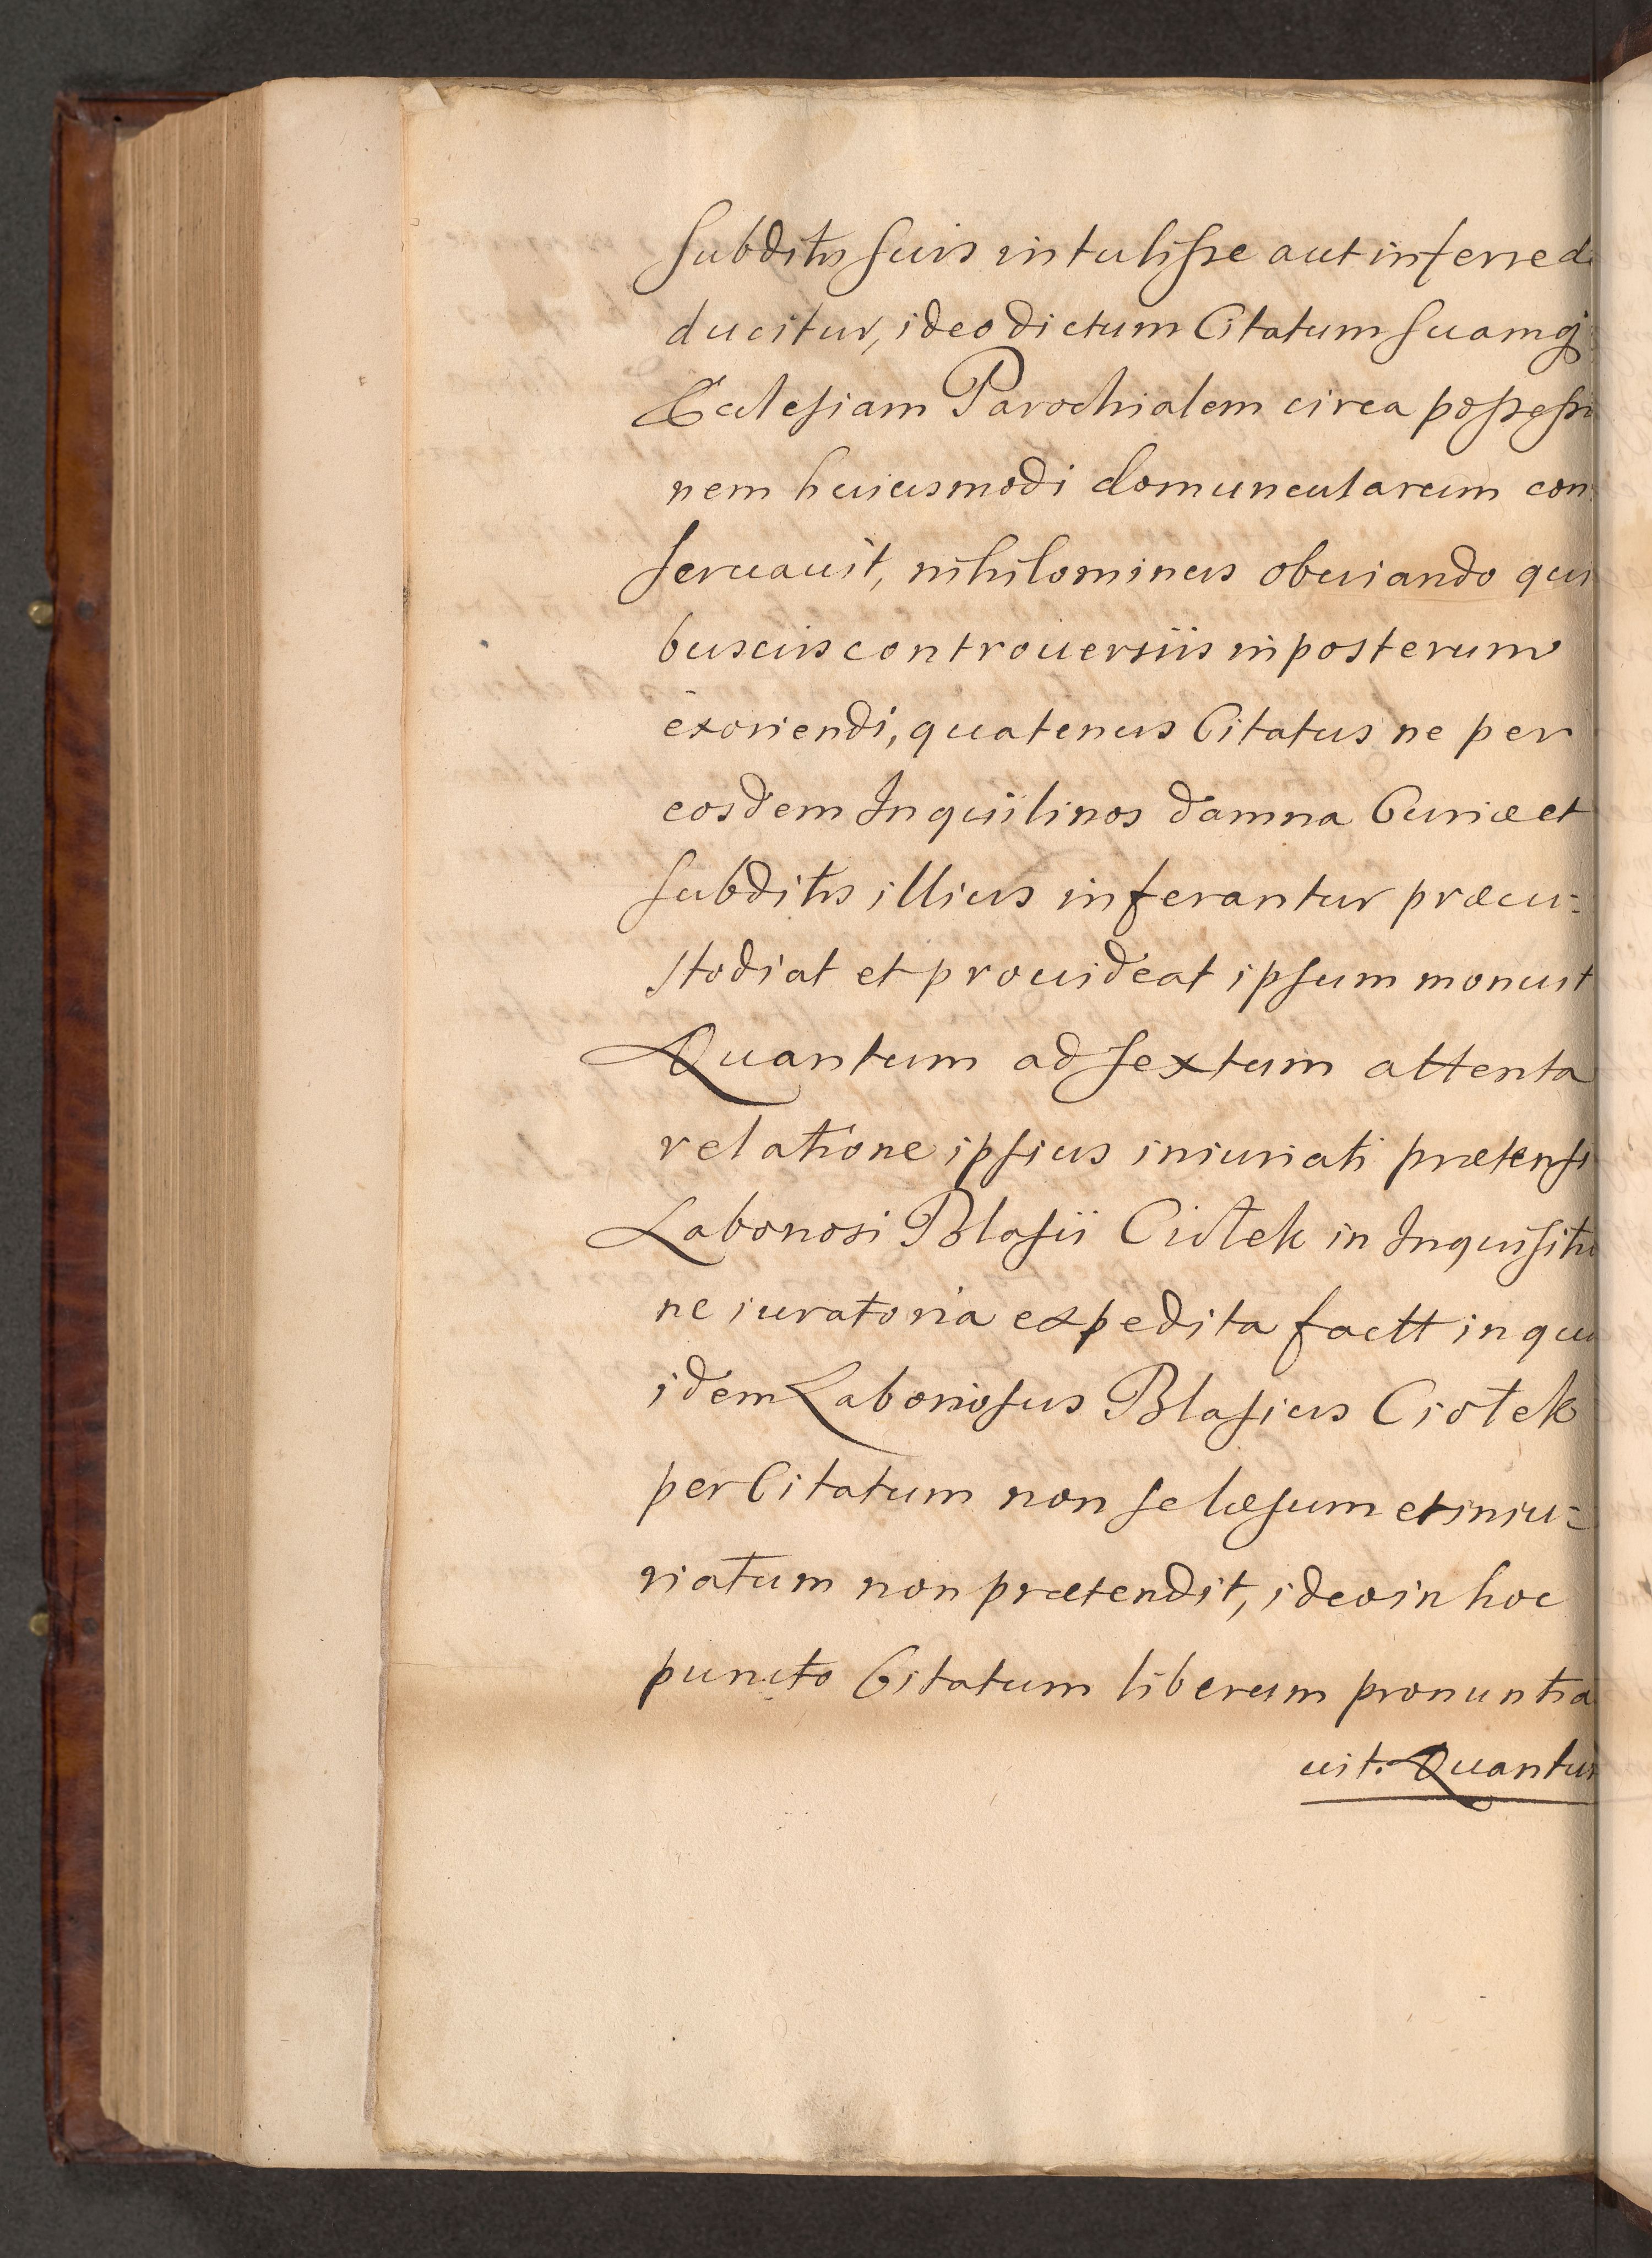 subditis suis intulisse aut inferre de
ducitur, ideo dictum Citatum suamq̃
Ecclesiam Parochialem circa possessi
nem huiusmodi domuncularum con
seruauit, nihilominus obuiando qui
buscuis controuersiis in posterum
exoriendi, quatenus Citatus ne per
eosdem Inquilinos damna Curiæ et
subditis illius inferantur præcu=
stodiat et prouideat ipsum monuit
Quantum ad sextum attenta
relatione ipsius iniuriati prætensi
Laboriosi Blasii Ciołek in Inquisitio
ne iuratoria expedita factt in qua
idem Laboriosus Blasius Ciołek
per Citatum non se læsum et iniu=
riatum non prætendit, ideo in hoc
puncto Citatum liberum pronuntia
uit. Quantum